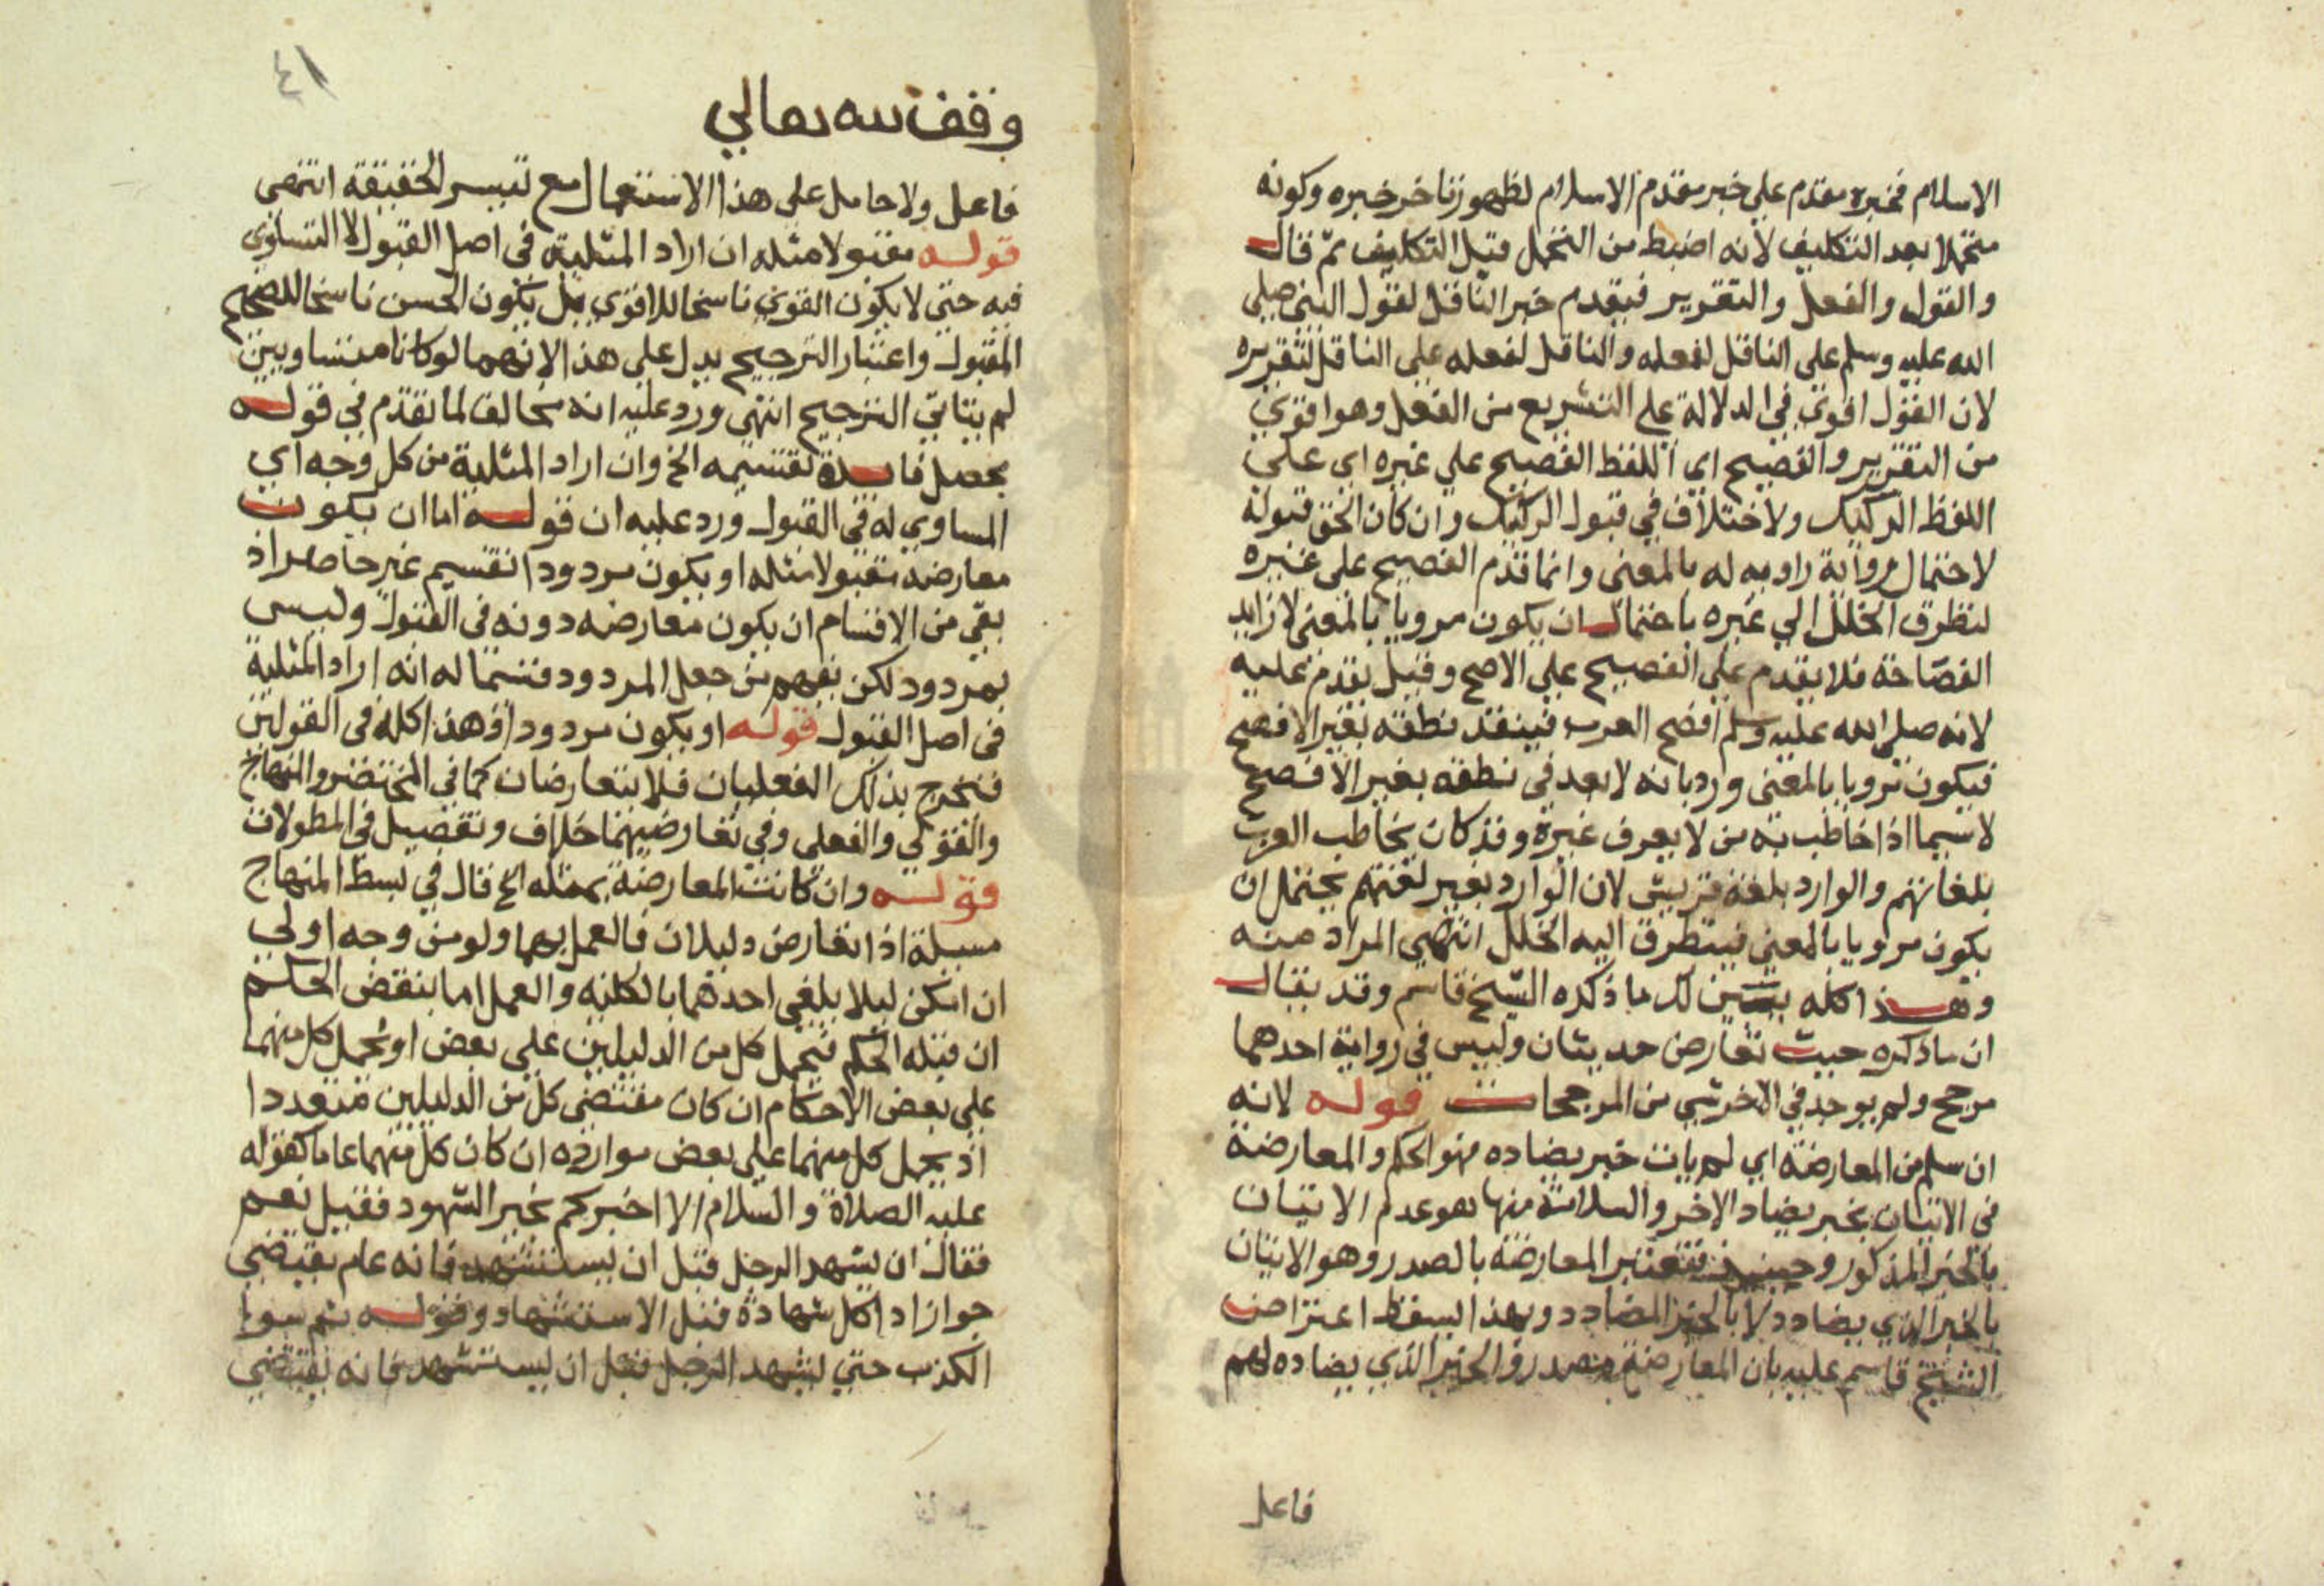 الاسلام فخبره مقدم على خبر مقدم الاسلام لظهور تاخر خبره وكونه
متحملا بعد التكليف لانه اضبط من التحمل قبل التكليف ثم قال
والقول والفعل والتقرير فيقدم خبر الناقل لقول النبى صلى
الله عليه وسلم على الناقل لفعله والناقل لفعله على الناقل لتقريره
لان القول اقوي في الدلالة على التشريع من الفعل وهو اقوي
من التقرير والفصيح اى اللفظ الفصيح على غيره اى على
اللفظ الركيك ولاختلاف في قبول الركيك وان كان الحق قبوله
لاحتمال رواية راويه له بالمعنى وانما قدم الفصيح على غيره
لتطرق الخلل الي غيره باحتمال ان يكون مرويا بالمعنى لا زايد
الفصاحة فلا يقدم علي الفصيح علي الاصح وقيل يقدم عليه
لانه صلى الله عليه وسلم افصح العرب فيبعد نطقه بغير الافصح
فيكون مرويا بالمعنى ورد بانه لا بعد في نطقه بغير الافصح
لا سيما اذا خاطب به من لا يعرف غيره وقد كان يخاطب العرب
بلغاتهم والوارد بلغة قريش لان الوارد بغير لغتهم يحتمل ان
يكون مرويا بالمعني فيتطرق اليه الخلل انتهي المراد منه
وهذا كله يبين لك ما ذكره الشيخ قاسم وقد يقال
ان ما ذكره حيث تعارض حديثان وليس في رواية احدهما
مرجح ولم يوجد في الاخر شي من المرجحات قوله لانه
ان سلم من المعارضة اي لم يات خبر يضاده فهو الحكم والمعارضة
فى الاتيان بخبر يضاد الاخر والسلامة منها هو عدم الاتيان
بالخبر المذكور وحينئذ فتعتبر المعارضة بالصدر وهو الاتيان
بالخبر الذي يضادد لا بالخبر المضادد وبهذا يسقط اعتراض
الشيخ قاسم عليه بان المعارضة مصدر والخبر الذي يضاده لهم
فاعل
٤١
وقف لله تعالي
فاعل ولا حامل على هذا الاستعمال مع تيسر الحقيقة انتهى
قوله مقبولا مثله ان اراد المثلية في اصل القبول لا التساوي
فيه حتي لا يكون القوي ناسخا للاقوي بل يكون الحسن ناسخا للصحيح
المقبول واعتبار الترجيح يدل على هذا لانهما لو كانا متساويين
لم يتاتي الترجيح انتهى ورد عليه انه مخالف لما تقدم في قوله
يحصل فايدة تقسيمه الخ وان اراد المثلية من كل وجه اي
المساوي له في القبول ورد عليه ان قوله اما ان يكون
معارضه مقبولا مثله او يكون مردودا تقسيم غير حاصر اذ
بقي من الاقسام ان يكون معارضه دونه فى القبول وليس
بمردود لكن يفهم من جعل المردود قسما له انه اراد المثلية
فى اصل القبول قوله او يكون مردودا وهذا كله في القولين
فخرج بذلك الفعليان فلا يتعارضان كما في المختصر والمنهاج
والقولي والفعلى وفي تعارضهما خلاف وتفصيل في المطولات
قوله وان كانت المعارضة بمثله الخ قال في بسط المنهاج
مسيلة اذا تعارض دليلان فالعمل بهما ولو من وجه اولي
ان امكن ليلا يلغى احدهما بالكلية والعمل اما بتبعض الحكم
ان قبله الحكم فيحمل كل من الدليلين علي بعض او يحمل كل منهما
علي بعض الاحكام ان كان مقتضى كل من الدليلين متعددا
اذ يحمل كل منهما على بعض موارده ان كان كل منهما عاما كقوله
عليه الصلاة والسلام الا اخبركم بخير الشهود فقيل نعم
فقال ان يشهد الرجل قبل ان يستشهد فانه عام يقتضي
جواز اداكل شهادة قبل الاستشهاد وقوله ثم
الكذب حتي يشهد الرجل قبل ان يستشهد فانه يقتضي